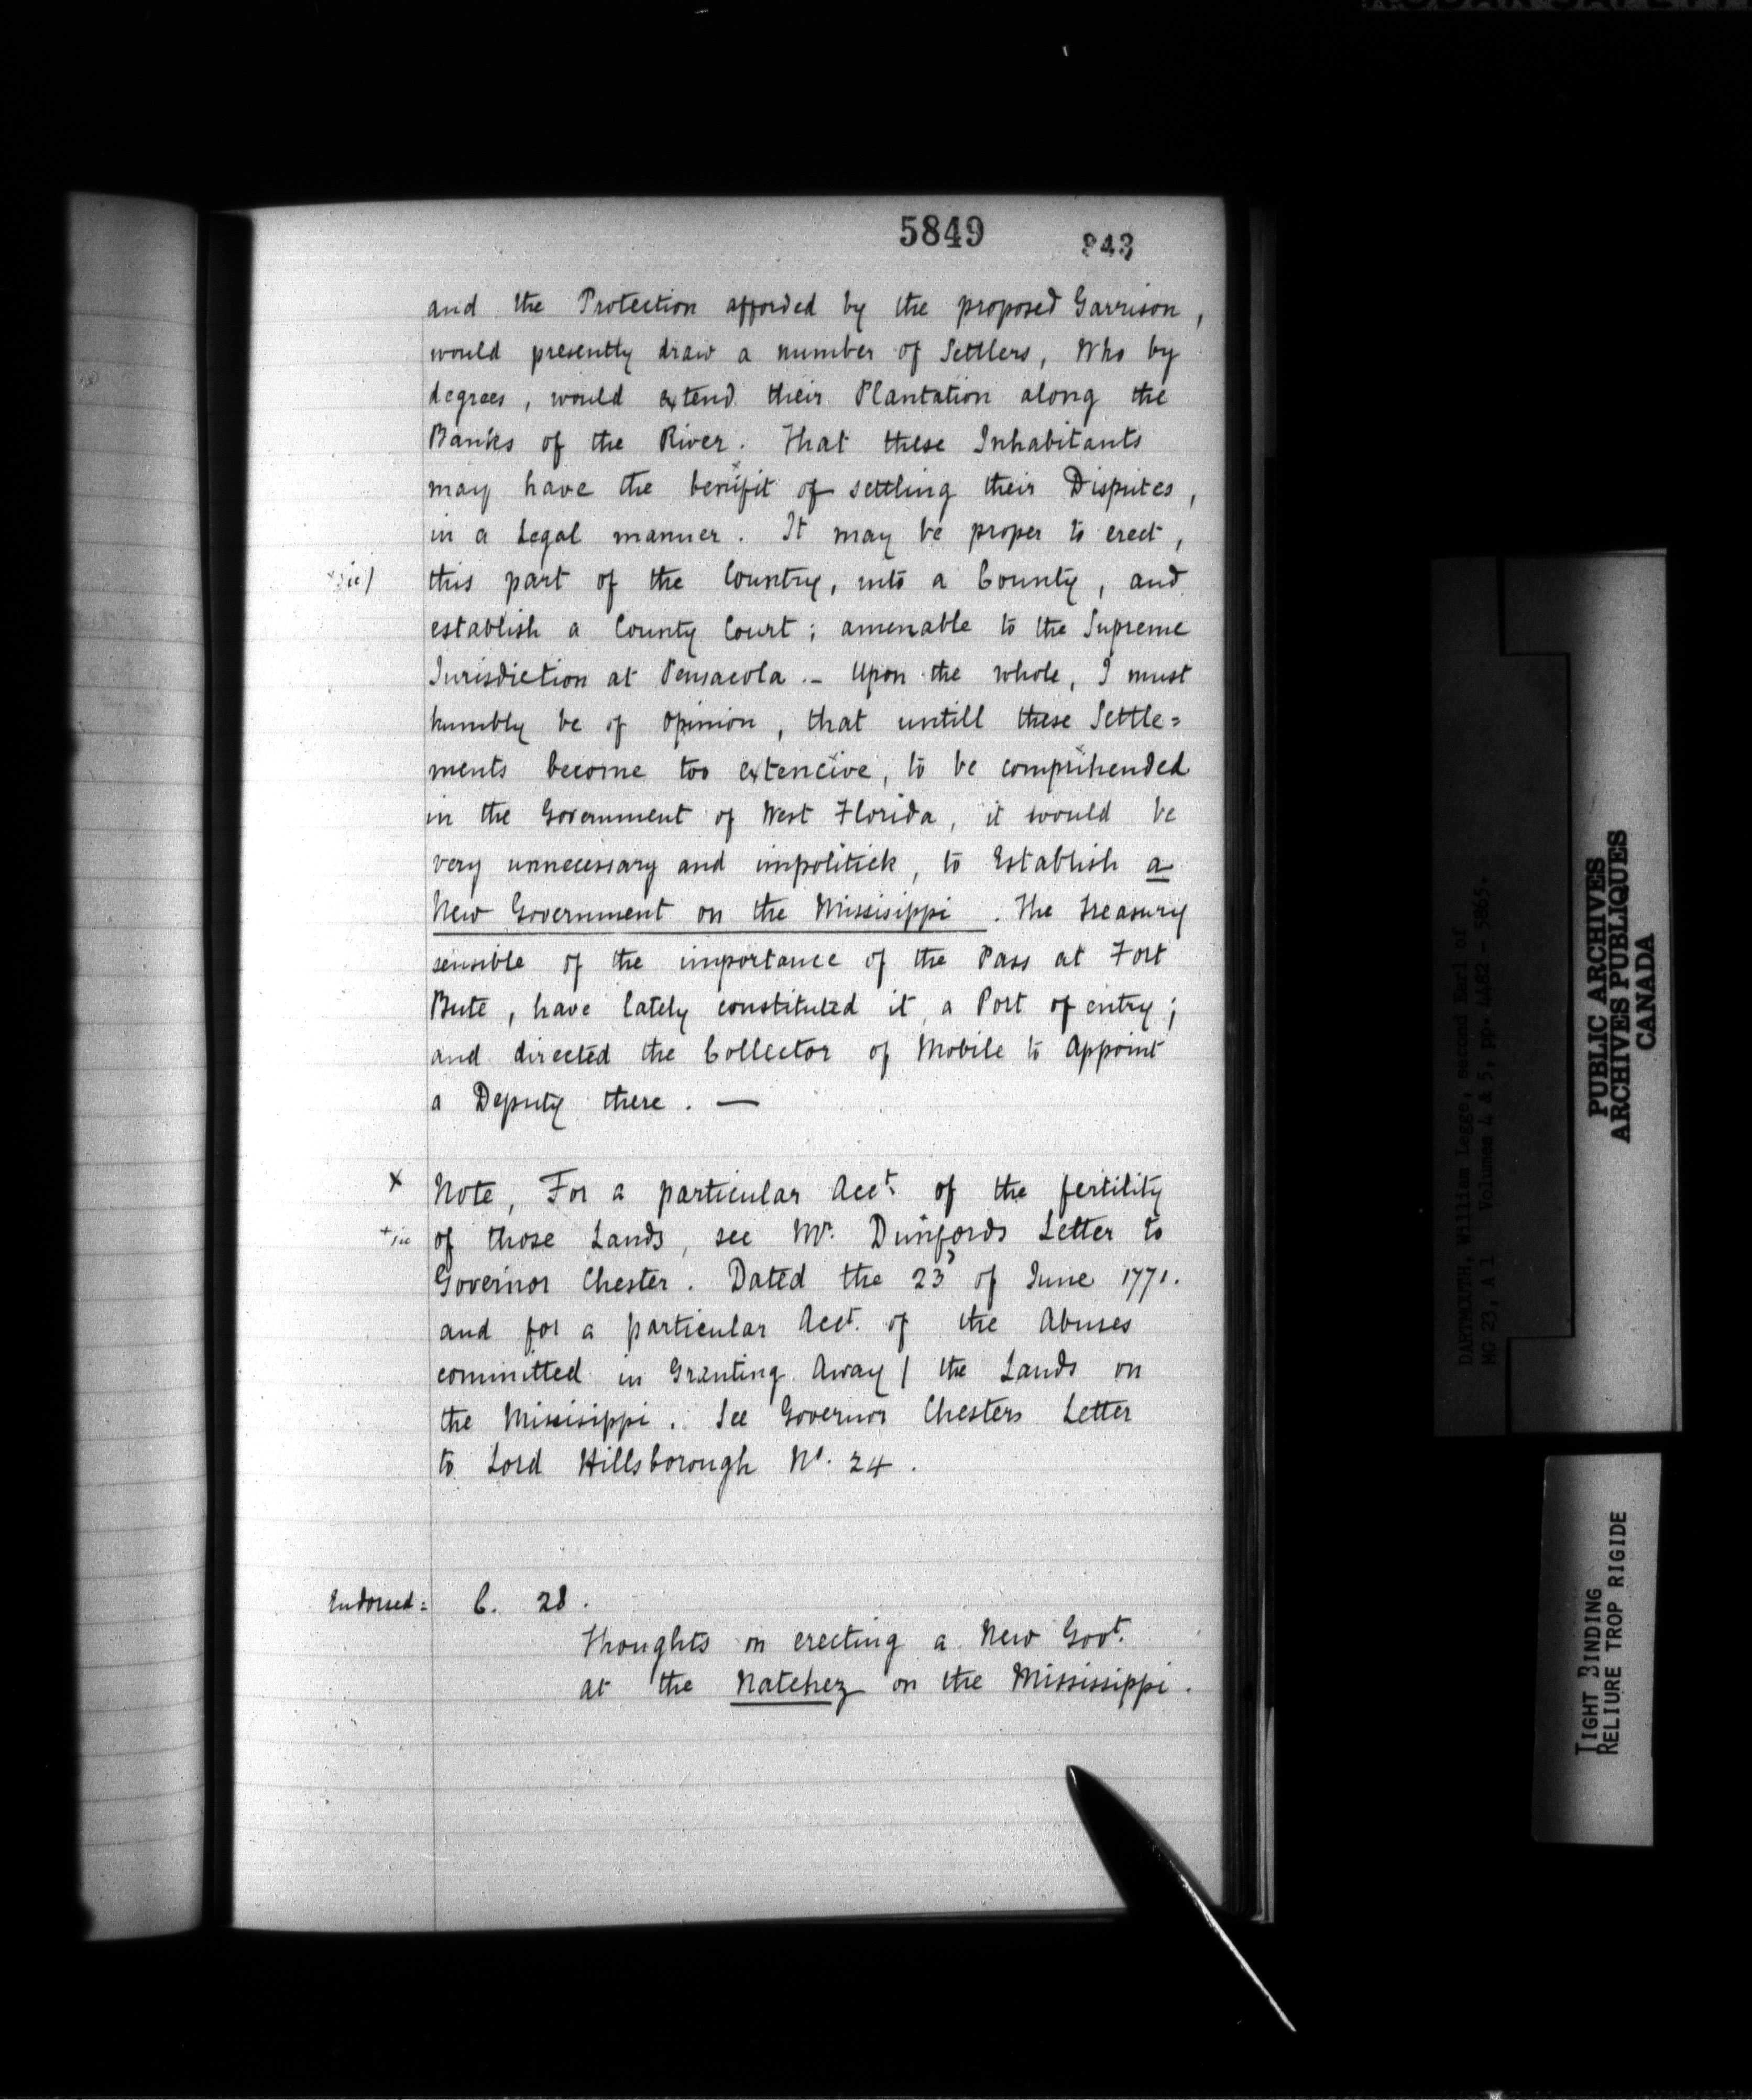 5849
843
and the Protection afforded by the proposed Garrison,
would presently draw a number of Settlers, Who by
degrees, would extend their Plantation along the
Banks of the River. That these Inhabitants
may have the benifit of settling their Disputes,
in a Legal manner. It may be proper to erect,
this part of the Country, into a County, and
establish a County Court; amenable to the Supreme
Jurisdiction at Pensacola.- Upon the whole, I must
humbly be of opinion, that untill these Settle=
ments become too extencive, to be comprihended
in the Government of West Florida, it would be
very unnecessary and impolitick, to Establish a
New Government on the Missisippi. The Treasury
sensible of the importance of the Pass at Fort
Bute, have lately constituted it a Port of entry;
and directed the Collector of Mobile to Appoint
a Deputy there. —
x Note, For a particular Acct. of the fertility
of those Lands, see Mr. Dunfords Letter to
Governor Chester. Dated the 23d of June 1771.
and for a particular Acct. of the Abuses
committed in Granting Away / the Lands on
the Missisippi. See Governor Chesters Letter
to Lord Hillsborough No. 24.
Endorsed= C. 28.
Thoughts on erecting a New Govt.
at the Natchez on the Mississippi.
DARTMOUTH, William Legge, second Earl of
MG 23, A 1 Volumes 4 & 5, pp. 4482 - 5865.
PUBLIC ARCHIVES
ARCHIVES PUBLIQUES
CANADA
TIGHT BINDING
RELIURE TROP RIGIDE